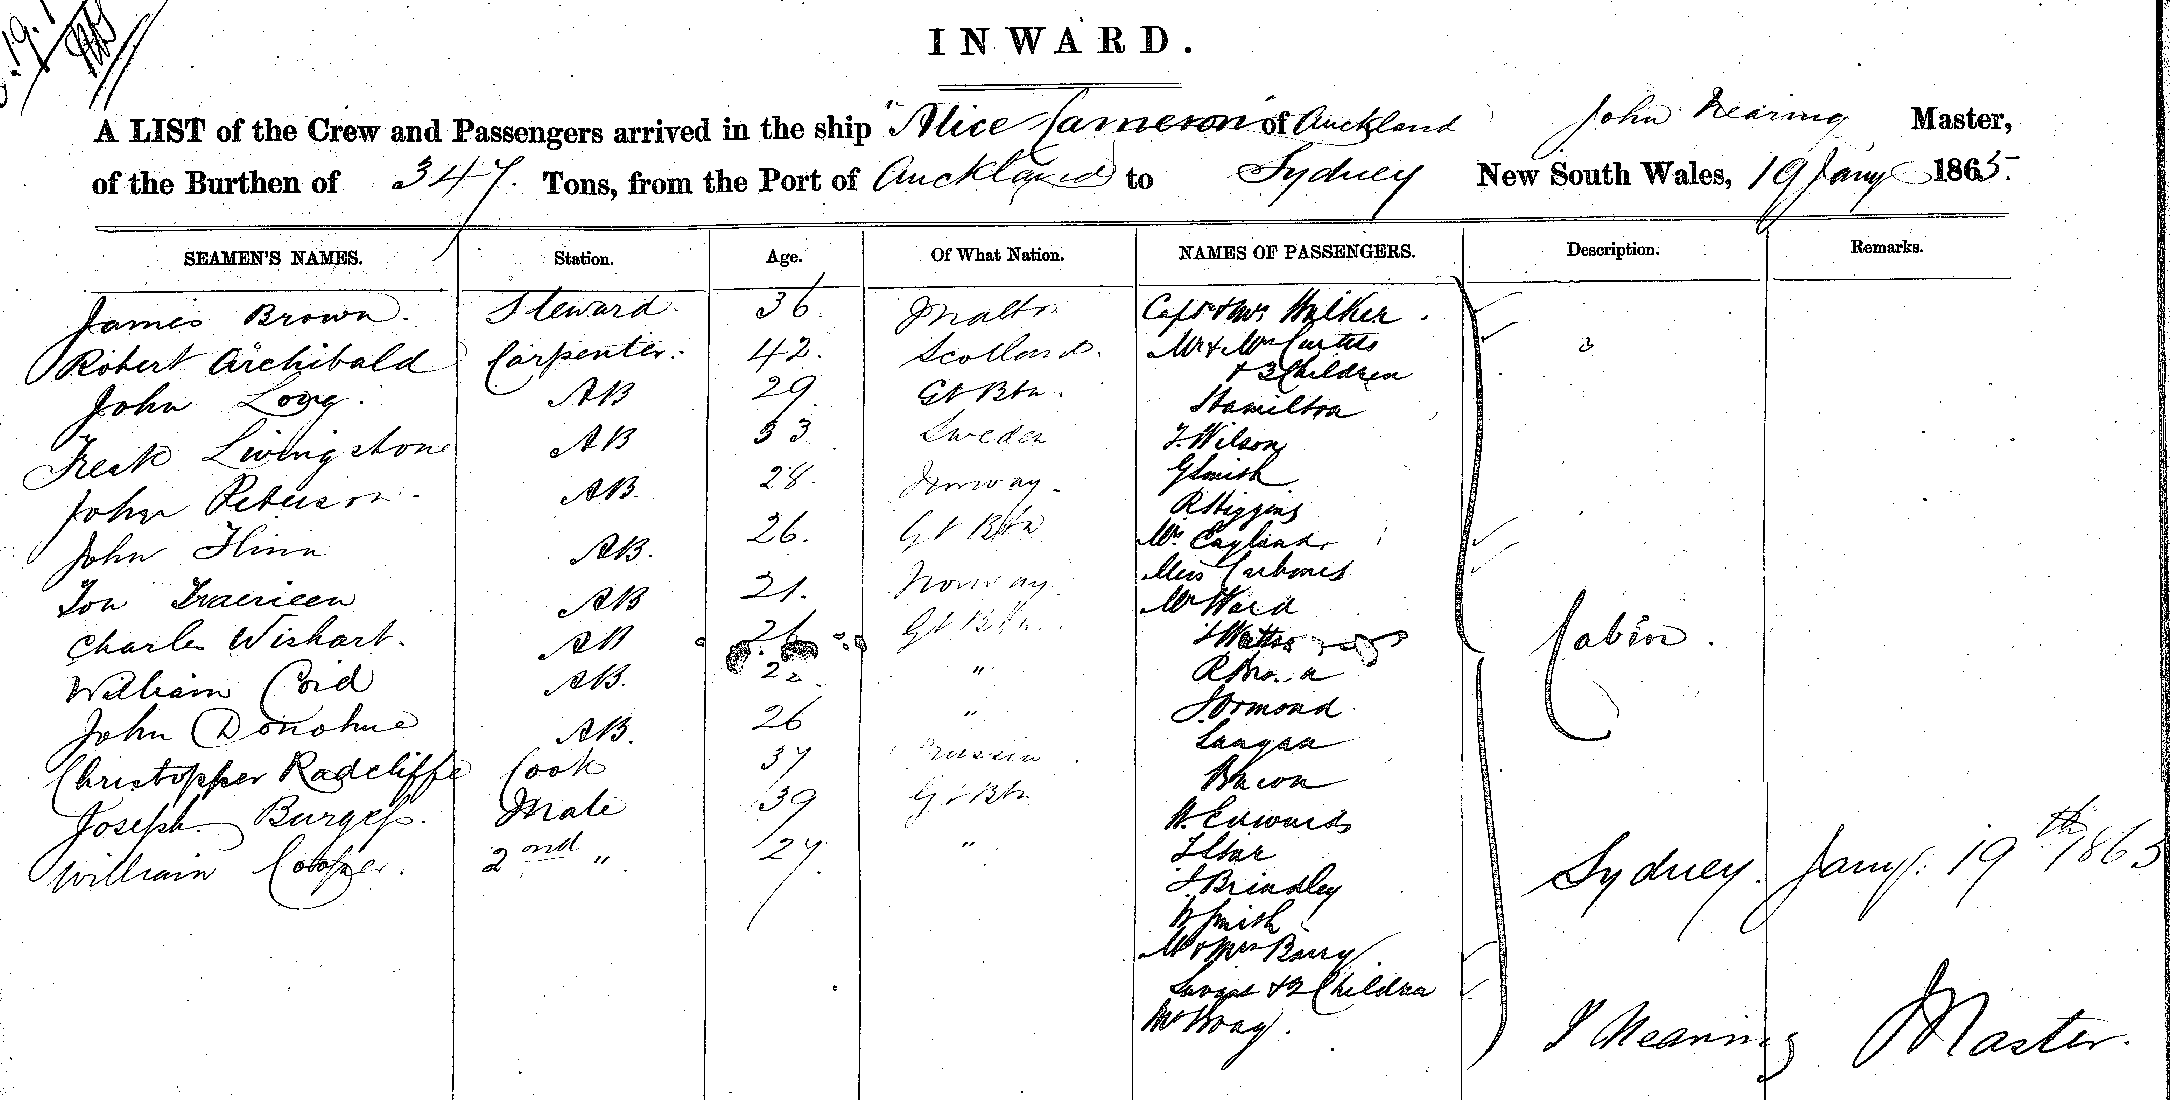 INWARD.
A LIST of the Crew and Passengers arrived in the ship "Alice Cameron" of Auckland John Nearing Master,
of the Burthen of 347. Tons, from the Port of Auckland to Sydney New South Wales, 19 Jany 1865.
SEAMEN'S NAMES. Station. Age. Of What Nation. NAMES OF PASSENGERS. Description. Remarks.
James Brown. Steward. 36 Malta Capt & Mrs Walker.
Robert Archibald Carpenter. 42. Scotland. Mr & Mrs Curtis
& 3 Children
John Long. AB 29 Gt Btn. Hamilton
Livingstone AB 33 Sweden T. Wilson
G Smith
John Peterson. AB. 28. Norway. R Higgins
John Flinn AB. 26. Gt Btn Mr England
AB 21. Norway Miss
Mr Ward
Charles Wishart. AB 26 Gt Btn J Watts
William AB. 22 " R
John Donohue AB. 26 " J Ormond
Langan
Christopher Radcliffe Cook 37 Russia Bacon
Joseph Burgess. Mate 39 Gt Btn W. Edwards
William Cooper. 2nd " 27. "
J Brindley
W Smith
Mr & Mrs Barry
& 2 Children
Mr
Cabin.
Sydney. Jany. 19th 1865
J Nearing Master.